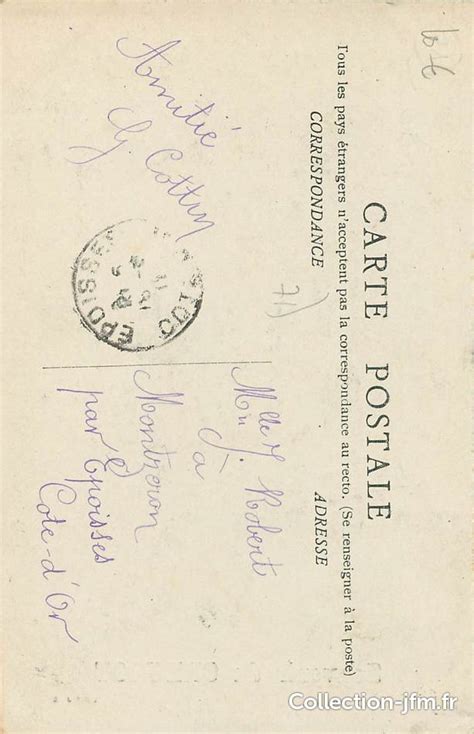 CARTE POSTALE
Tous les pays étrangers n'acceptent pas la correspondance au recto. (Se renseigner à la poste)
CORRESPONDANCE
ADRESSE
Amitié
Cottin
EPOISSES
Melle
Robert
à
Montzeron
par Epoisses
Cote-d'Or
71)
Collection-jfm.fr